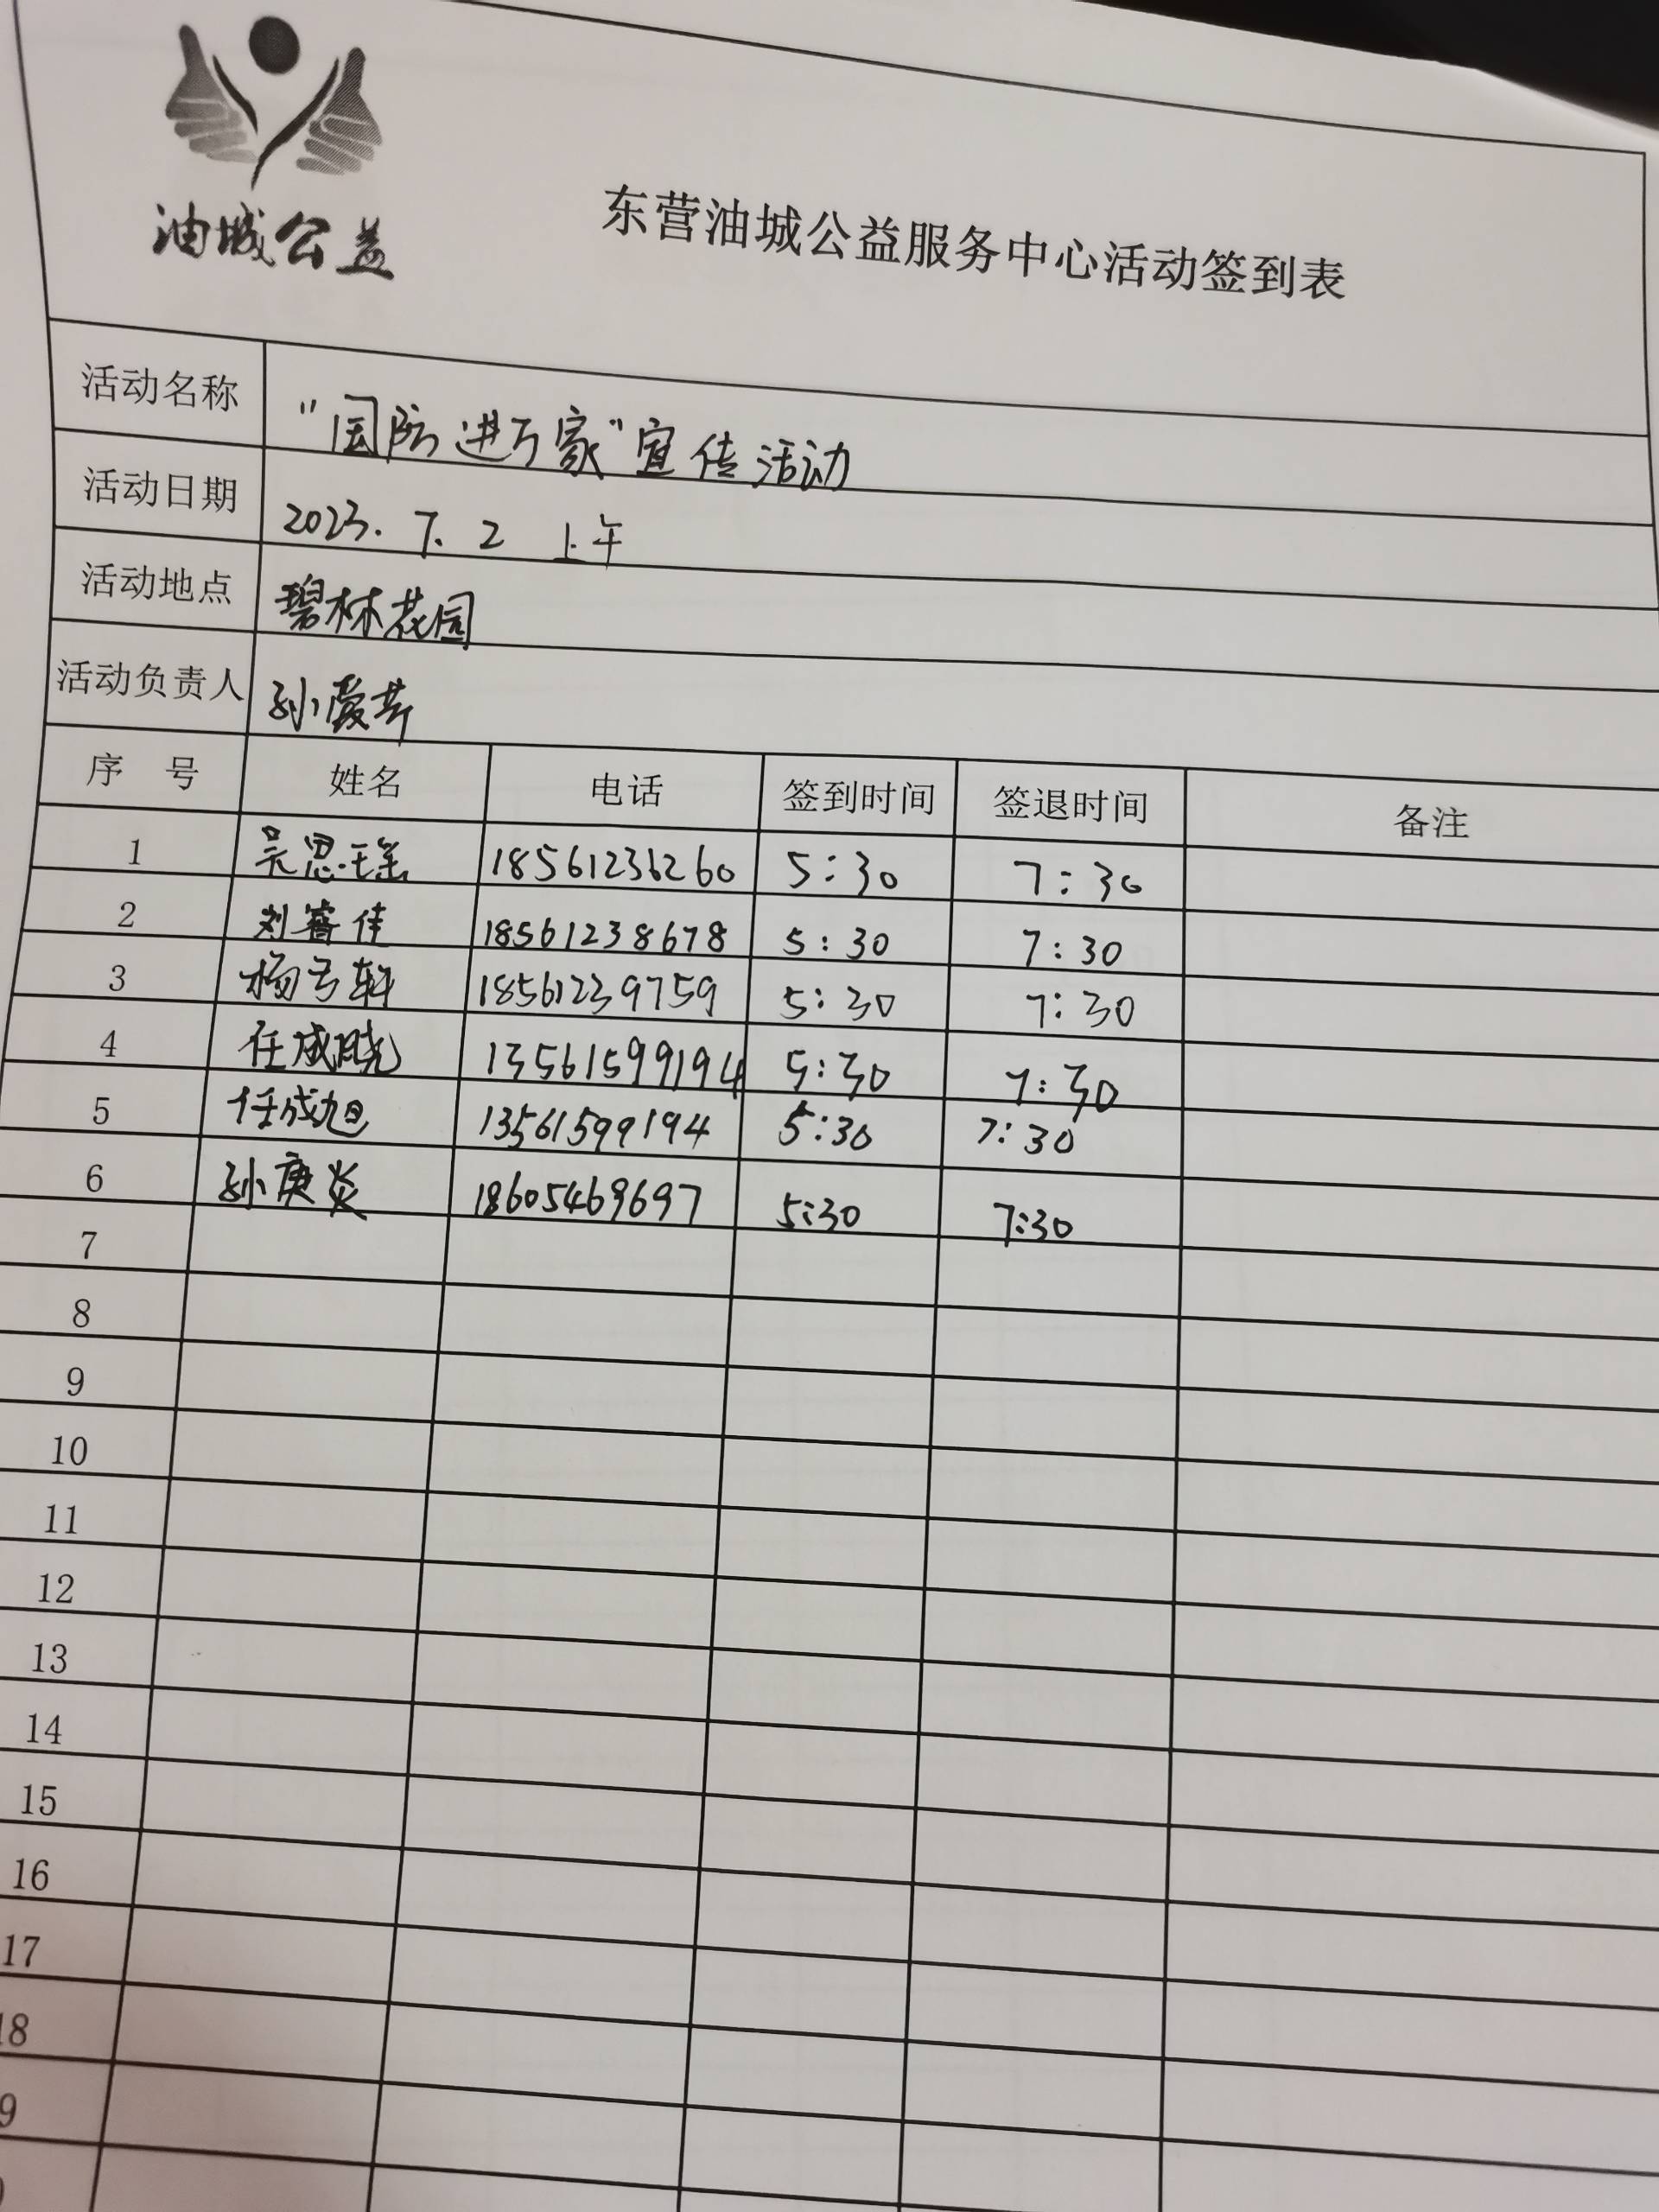 油城公益
东营油城公益服务中心活动签到表
活动名称 "国防进万家"宣传活动
活动日期 2023.7.2 上午
活动地点 碧林花园
活动负责人 孙爱芹
序 号 姓名 电话 签到时间 签退时间 备注
1 吴思瑶 18561236260 5:30 7:30
2 刘睿佳 18561238678 5:30 7:30
3 杨弓轩 18561239759 5:30 7:30
4 任成晓 13561599194 5:30 7:30
5 任成旭 13561599194 5:30 7:30
6 孙庚炎 18605469697 5:30 7:30
7
8
9
10
11
12
13
14
15
16
17
18
9